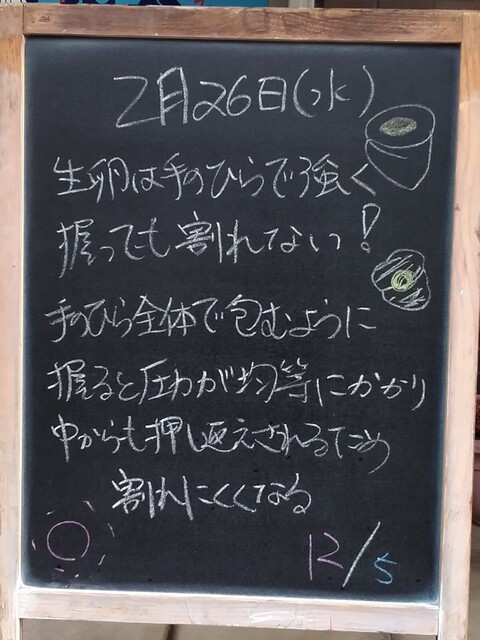 2月26日(水)
生卵は手のひらで強く
握っても割れない!
手のひら全体で包むように
握ると圧力が均等にかかり
中からも押し返えされるため
割れにくくなる
12/5